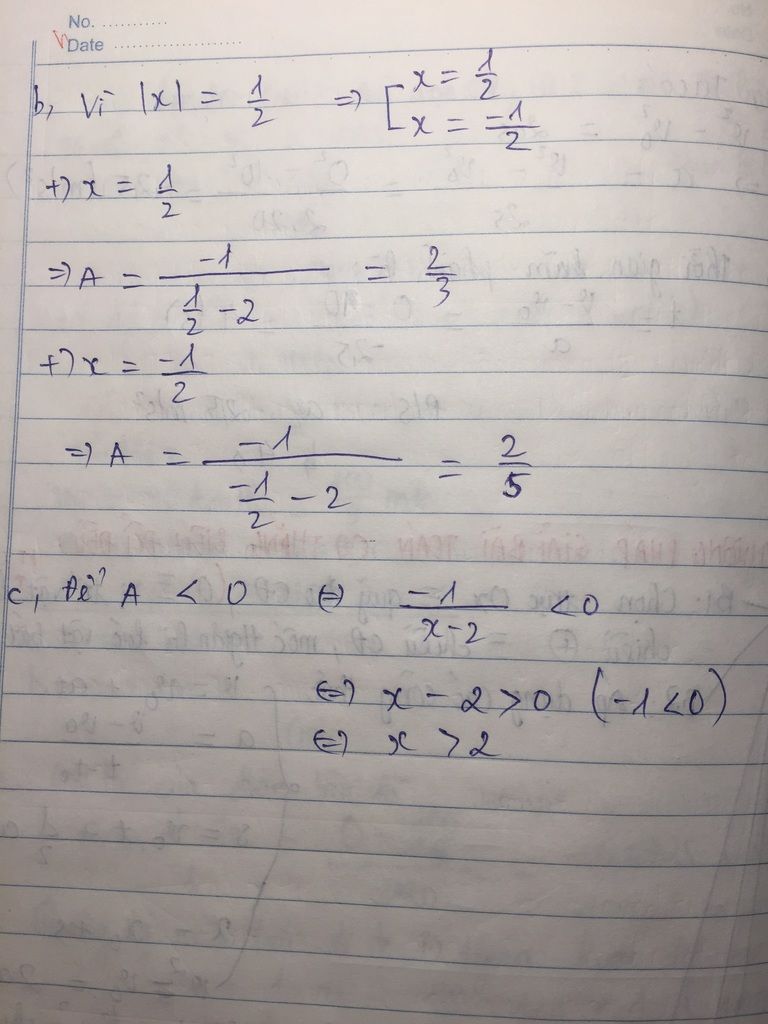 No. ...........
Date ......................
b, Vì |x| = 1/2 => [ x = 1/2
x = -1/2
+) x = 1/2
=> A = -1/(1/2 - 2) = 2/3
+) x = -1/2
=> A = -1/(-1/2 - 2) = 2/5
c, Để A < 0 <=> -1/(x-2) < 0
<=> x - 2 > 0 (-1 < 0)
<=> x > 2